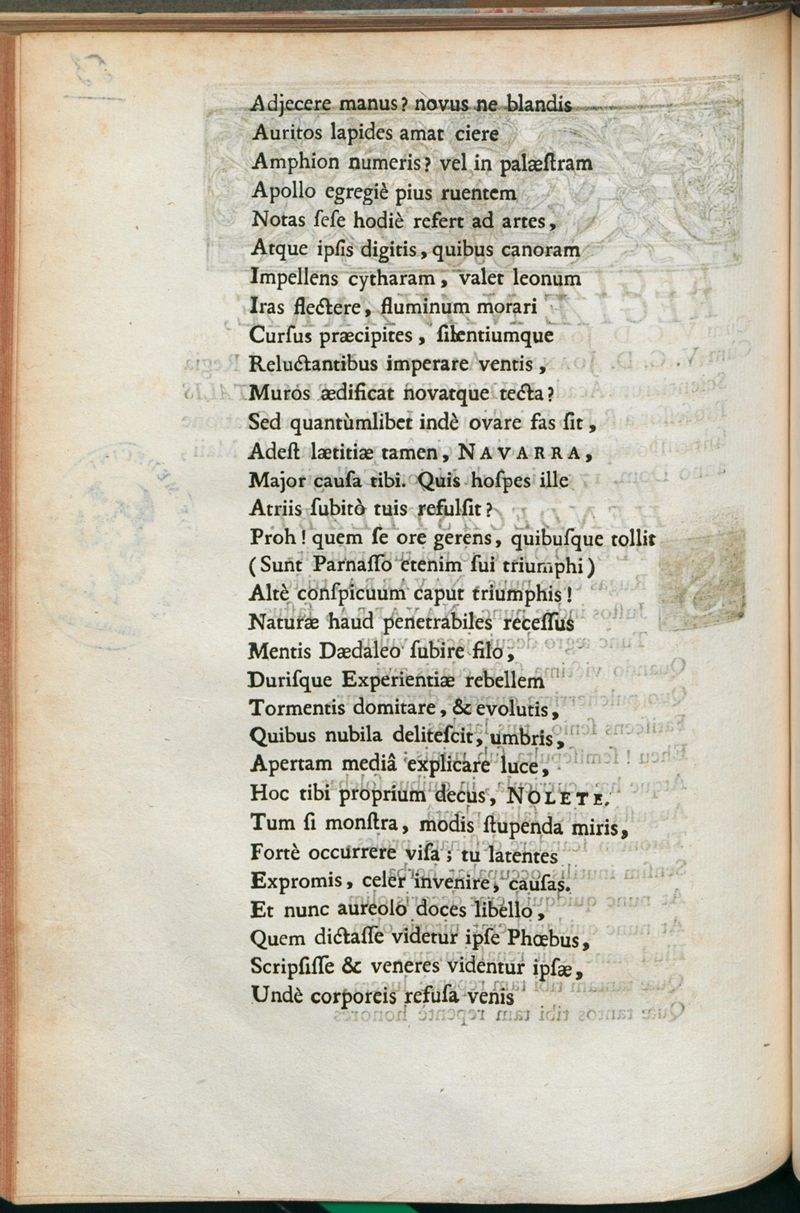 Adjecere manus? novus ne blandis
Auritos lapides amat ciere
Amphion numeris? vel in palæſtram
Apollo egregiè pius ruentem
Notas ſeſe hodiè refert ad artes,
Atque ipſis digitis, quibus canoram
Impellens cytharam, valet leonum
Iras flectere, fluminum morari
Curſus præcipites, ſilentiumque
Reluctantibus imperare ventis,
Muros ædificat novatque tecta?
Sed quantùmlibet indè ovare fas ſit,
Adeſt lætitiæ tamen, NAVARRA,
Major cauſa tibi. Quis hoſpes ille
Atriis ſubitò tuis refulſit?
Proh! quem ſe ore gerens, quibuſque tollit
(Sunt Parnaſſo etenim ſui triumphi)
Altè conſpicuum caput triumphis!
Naturæ haud penetrabiles receſſus
Mentis Dædaleo ſubire filo,
Duriſque Experientiæ rebellem
Tormentis domitare, & evolutis,
Quibus nubila deliteſcit, umbris,
Apertam mediâ explicare luce,
Hoc tibi proprium decus, NOLETE.
Tum ſi monſtra, modis ſtupenda miris,
Fortè occurrere viſa; tu latentes
Expromis, celer invenire, cauſas.
Et nunc aureolo doces libello,
Quem dictaſſe videtur ipſe Phœbus,
Scripſiſſe & veneres videntur ipſæ,
Undè corporeis refuſa venis